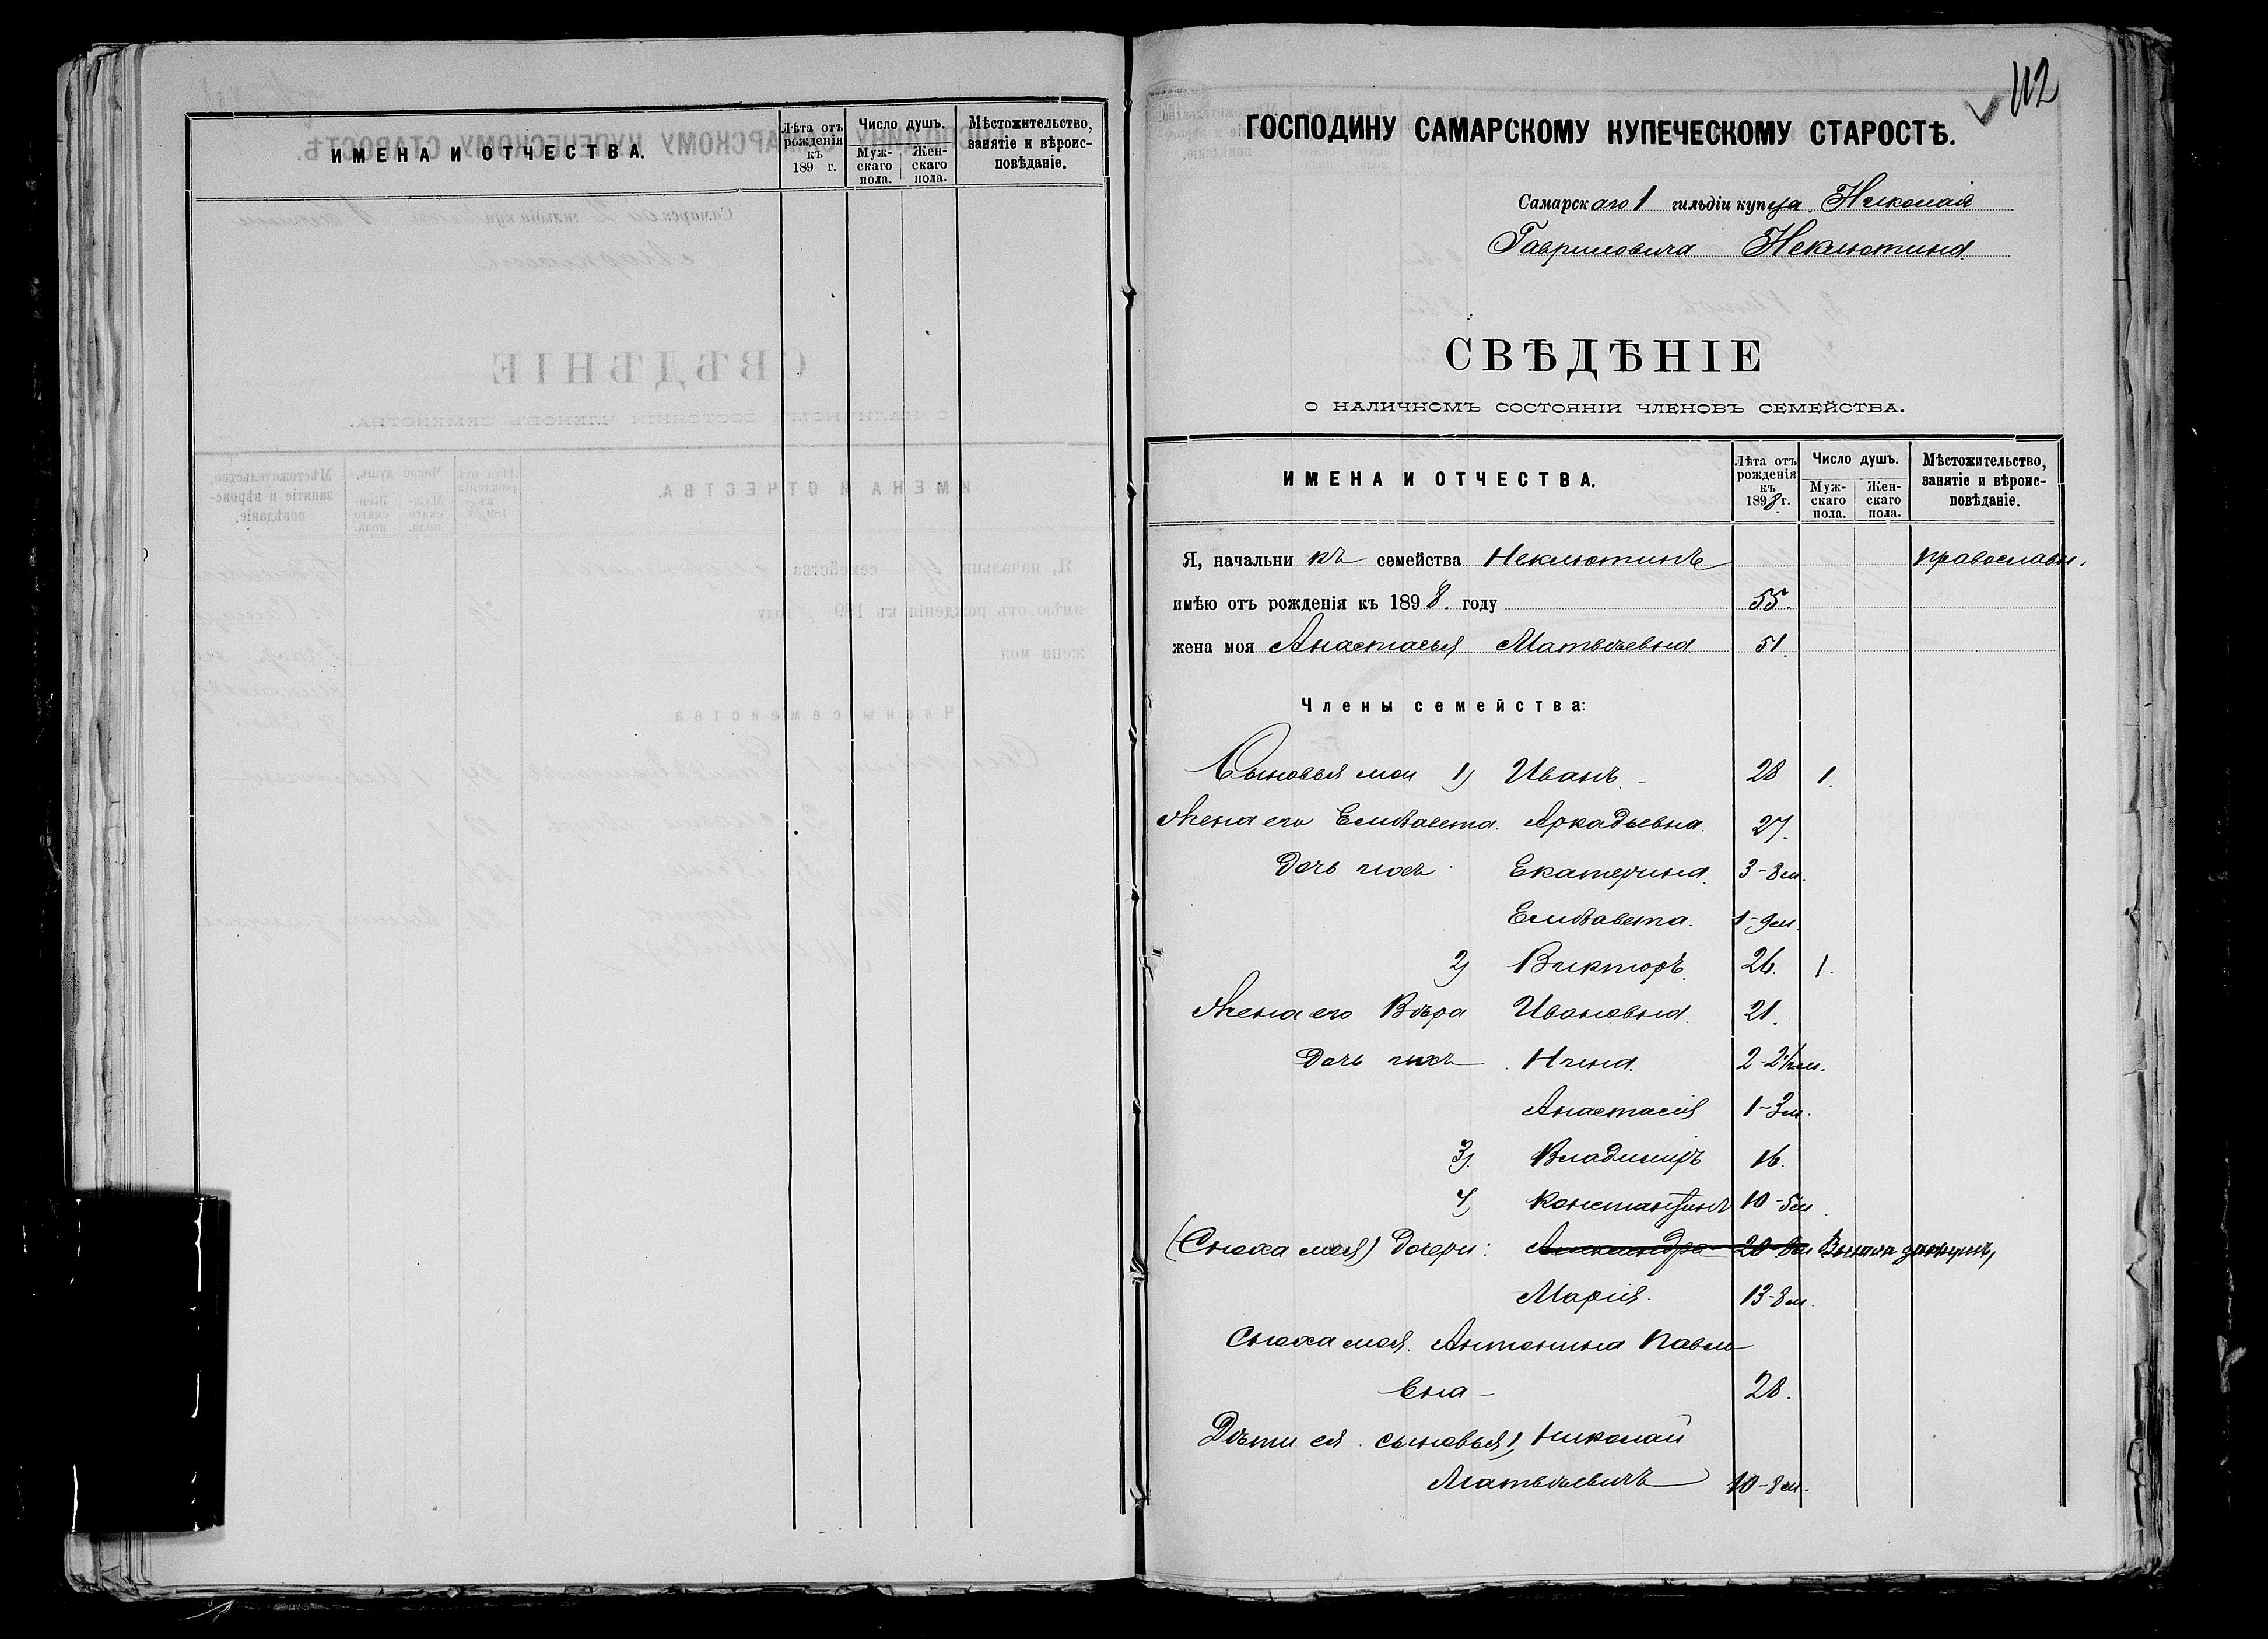 ИМЕНА И ОТЧЕСТВА.
Лѣта отъ рожденія къ 189 г.
Число душъ.
Мужскаго пола.
Женскаго пола.
Мѣстожительство, занятіе и вѣроисповѣданіе.
112
ГОСПОДИНУ САМАРСКОМУ КУПЕЧЕСКОМУ СТАРОСТѢ.
Самарскаго 1 гильдіи купца Николая
Гавриловича Неклютина.
СВѢДѢНІЕ
О НАЛИЧНОМЪ СОСТОЯНІИ ЧЛЕНОВЪ СЕМЕЙСТВА.
ИМЕНА И ОТЧЕСТВА.
Лѣта отъ рожденія къ 1898 г.
Число душъ.
Мужскаго пола.
Женскаго пола.
Мѣстожительство, занятіе и вѣроисповѣданіе.
Я, начальникъ семейства Неклютинъ православн.
имѣю отъ рожденія къ 1898. году 55.
жена моя Анастасья Матвѣевна 51.
Члены семейства:
Сыновья мои 1) Иванъ. 28 1.
Жена его Елизавета. Аркадьевна. 27.
Дочь ихъ Екатерина. 3-8 м.
Елизавета. 1-9 м.
2) Викторъ. 26. 1.
Жена его Вѣра Ивановна. 21.
Дочь ихъ Нина. 2-2½ м.
Анастасія 1-3 м.
3). Владимиръ 16.
4) Константинъ 10-5 м.
(Сноха моя) Дочери: Александра 20-8 м Вышла замужъ,
Марія. 13-8 м.
Сноха моя. Антонина Павло
вна - 28.
Дѣти ея. сыновья 1, Николай
Матвѣевичъ 10-8 м.